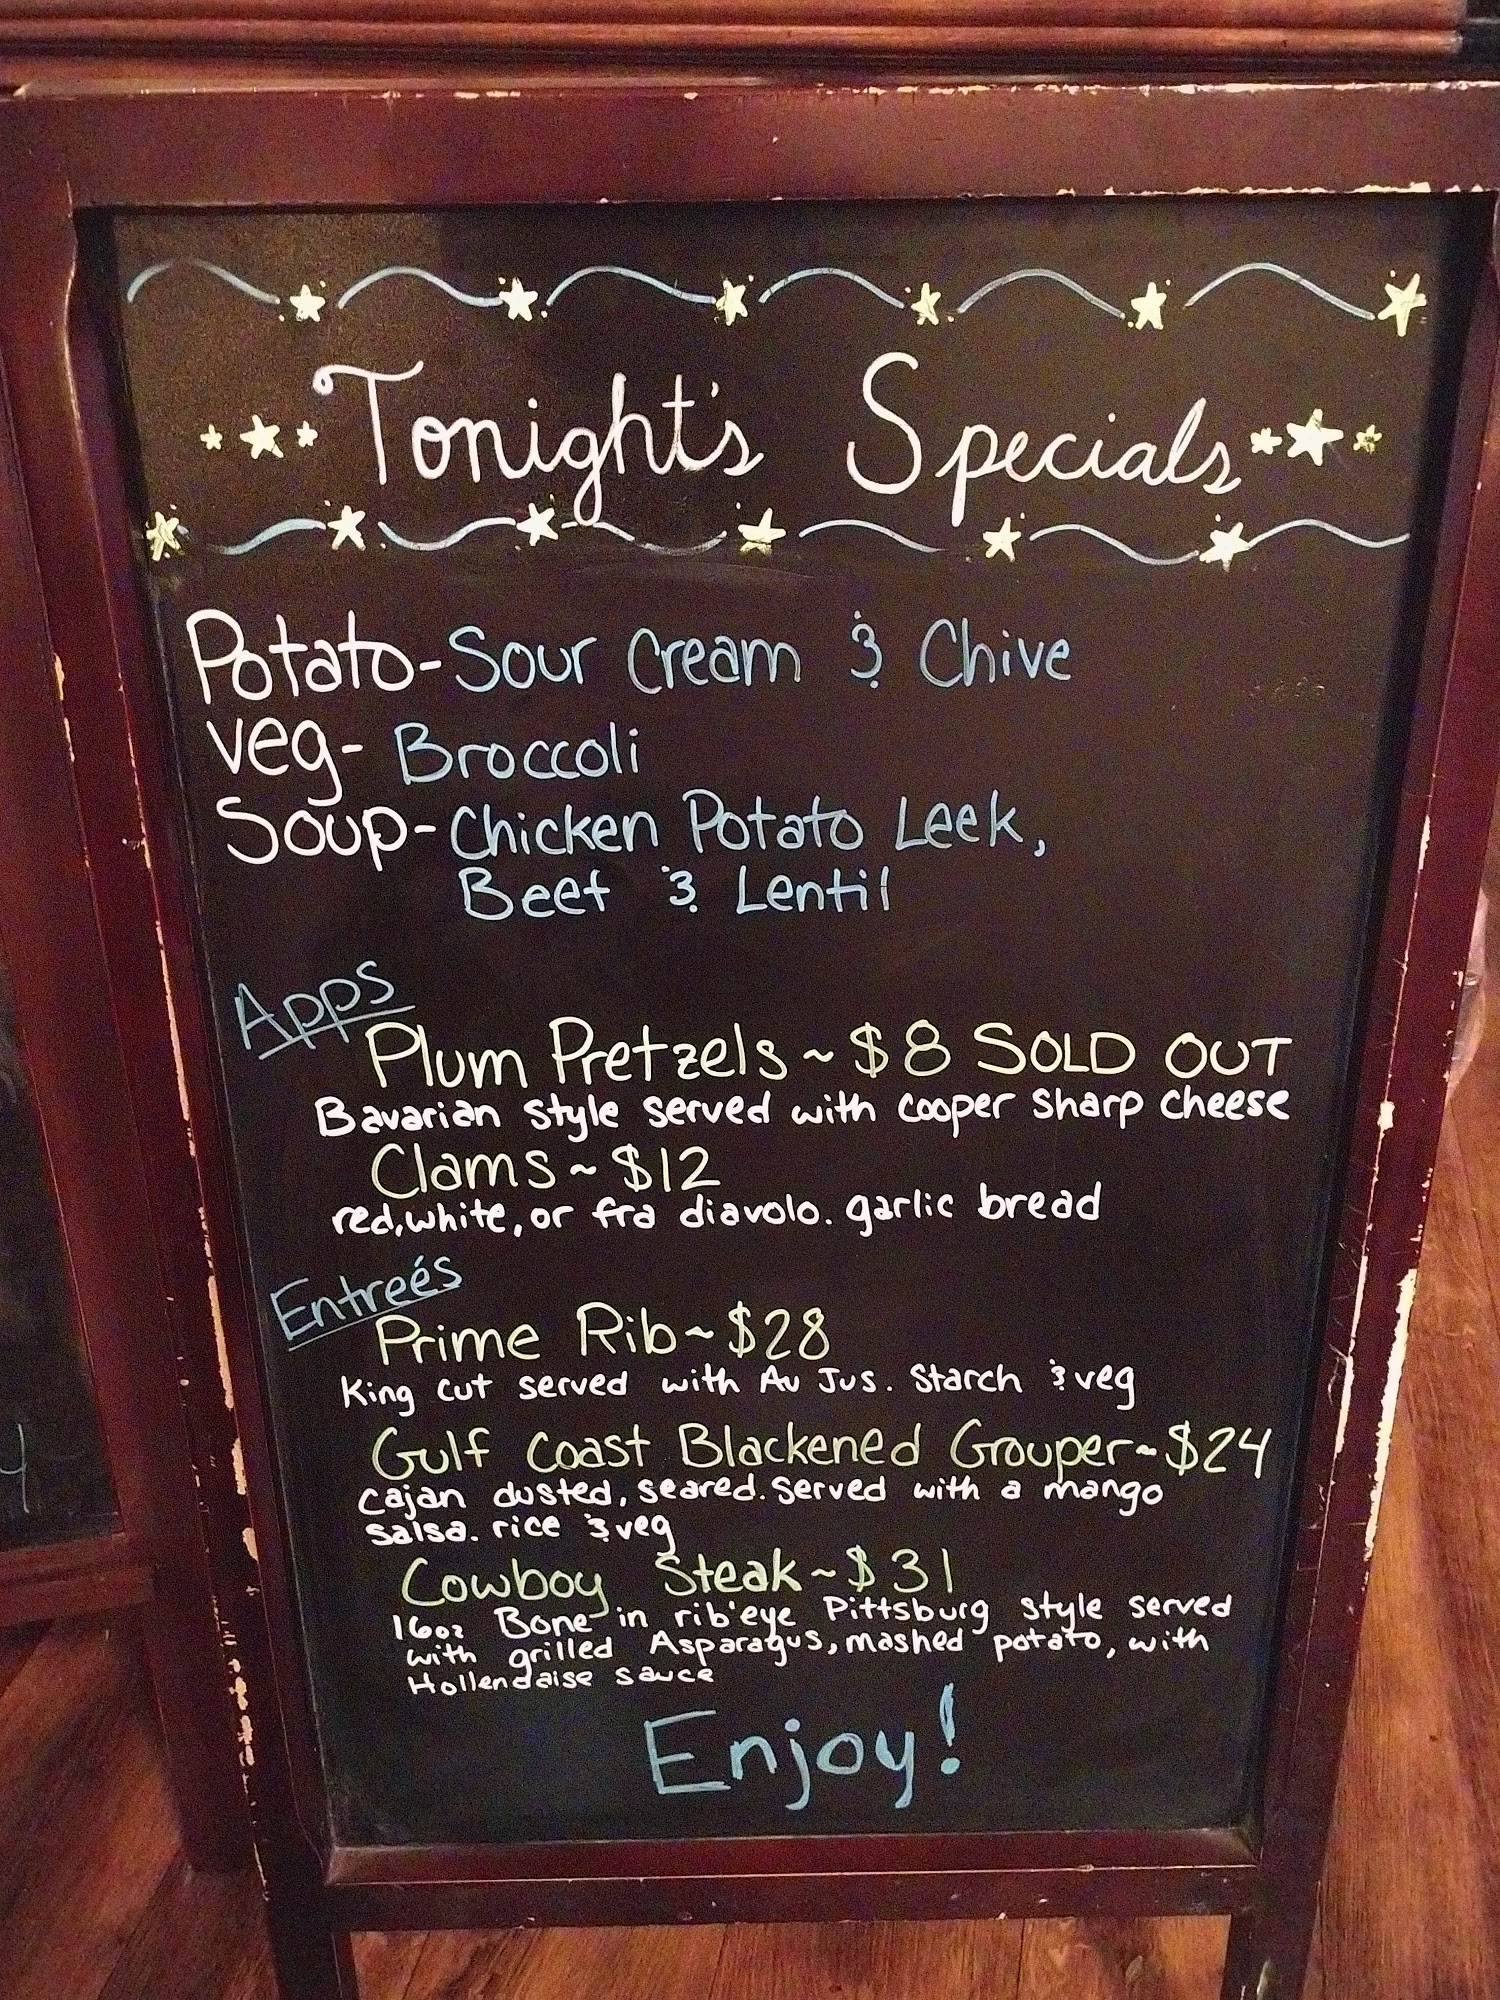 Tonight's Specials
Potato-Sour Cream & Chive
Veg- Broccoli
Soup-Chicken Potato Leek,
Beef & Lentil
Apps
Plum Pretzels ~ $8 SOLD OUT
Bavarian style served with cooper sharp cheese
Clams ~ $12
red, white, or fra diavolo. garlic bread
Entreés
Prime Rib ~ $28
King cut served with Au Jus. Starch & veg
Gulf Coast Blackened Grouper ~ $24
Cajan dusted, seared. Served with a mango
salsa. rice & veg
Cowboy Steak ~ $31
16oz Bone in rib'eye Pittsburg style served
with grilled Asparagus, mashed potato, with
Hollendaise sauce
Enjoy!